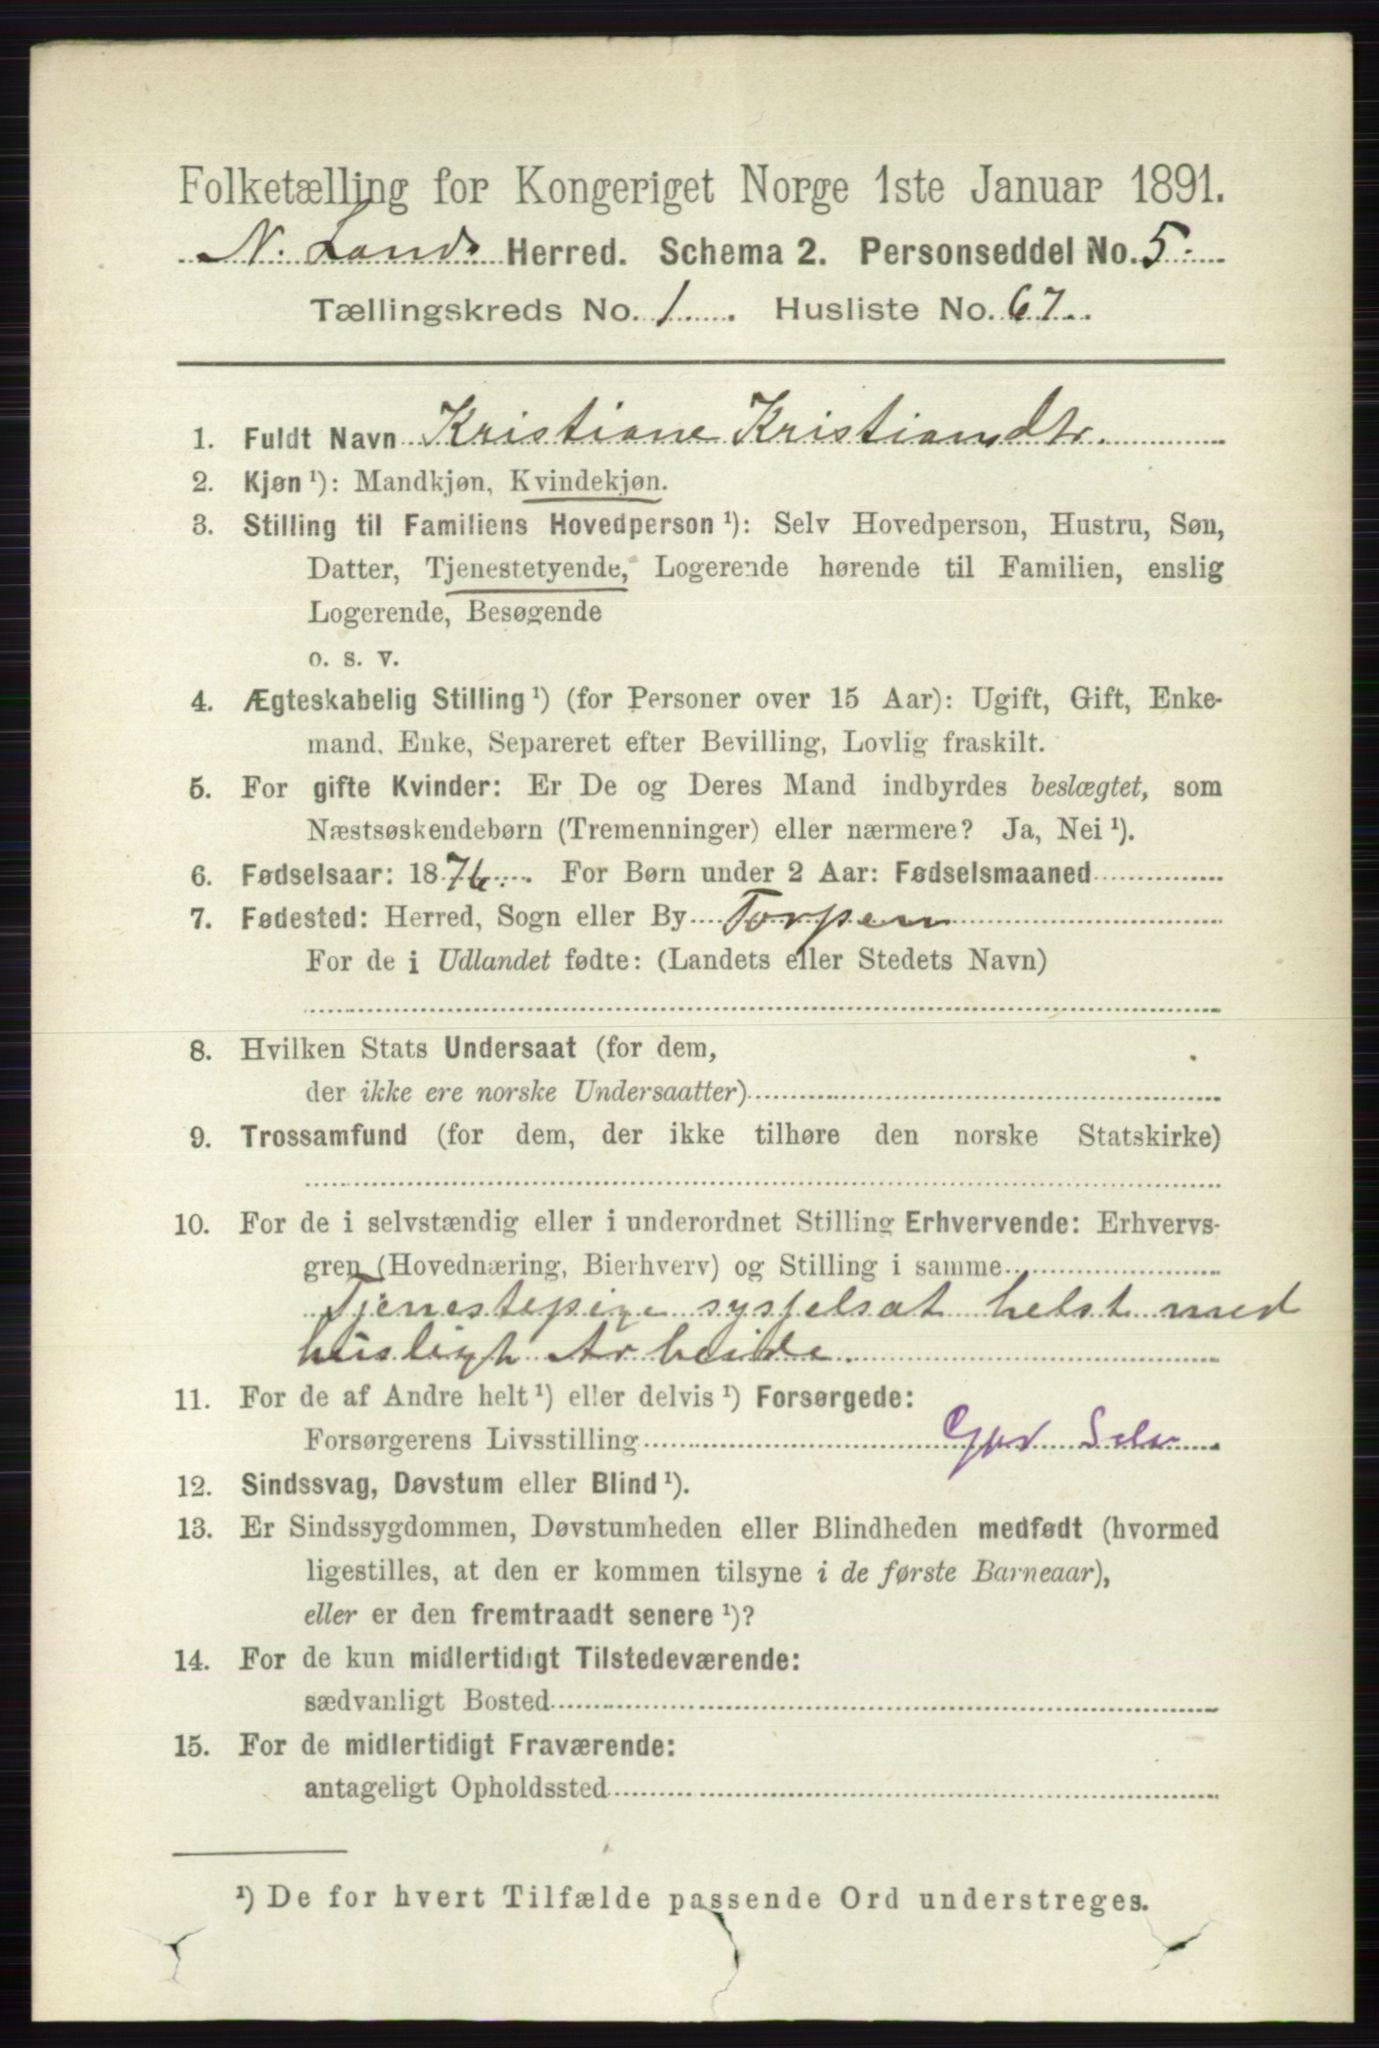 Folketælling for Kongeriget Norge 1ste Januar 1891.
N. Lands Herred. Schema 2. Personseddel No. 5.
Tællingskreds No. 1. Husliste No. 67.
1. Fuldt Navn Kristiane Kristiansdtr.
2. Kjøn ¹): Mandkjøn, Kvindekjøn.
3. Stilling til Familiens Hovedperson ¹): Selv Hovedperson, Hustru, Søn,
Datter, Tjenestetyende, Logerende hørende til Familien, enslig
Logerende, Besøgende
o. s. v.
4. Ægteskabelig Stilling ¹) (for Personer over 15 Aar): Ugift, Gift, Enke-
mand, Enke, Separeret efter Bevilling, Lovlig fraskilt.
5. For gifte Kvinder: Er De og Deres Mand indbyrdes beslægtet, som
Næstsøskendebørn (Tremenninger) eller nærmere? Ja, Nei ¹).
6. Fødselsaar: 1876. For Børn under 2 Aar: Fødselsmaaned
7. Fødested: Herred, Sogn eller By Torpen
For de i Udlandet fødte: (Landets eller Stedets Navn)
8. Hvilken Stats Undersaat (for dem,
der ikke ere norske Undersaatter)
9. Trossamfund (for dem, der ikke tilhøre den norske Statskirke)
10. For de i selvstændig eller i underordnet Stilling Erhvervende: Erhvervs-
gren (Hovednæring, Bierhverv) og Stilling i samme
Tjenestepige sysjelsat helst med
husligt Arbeide.
11. For de af Andre helt ¹) eller delvis ¹) Forsørgede:
Forsørgerens Livsstilling Gbr Selv
12. Sindssvag, Døvstum eller Blind ¹).
13. Er Sindssygdommen, Døvstumheden eller Blindheden medfødt (hvormed
ligestilles, at den er kommen tilsyne i de første Barneaar),
eller er den fremtraadt senere ¹)?
14. For de kun midlertidigt Tilstedeværende:
sædvanligt Bosted
15. For de midlertidigt Fraværende:
antageligt Opholdssted
¹) De for hvert Tilfælde passende Ord understreges.